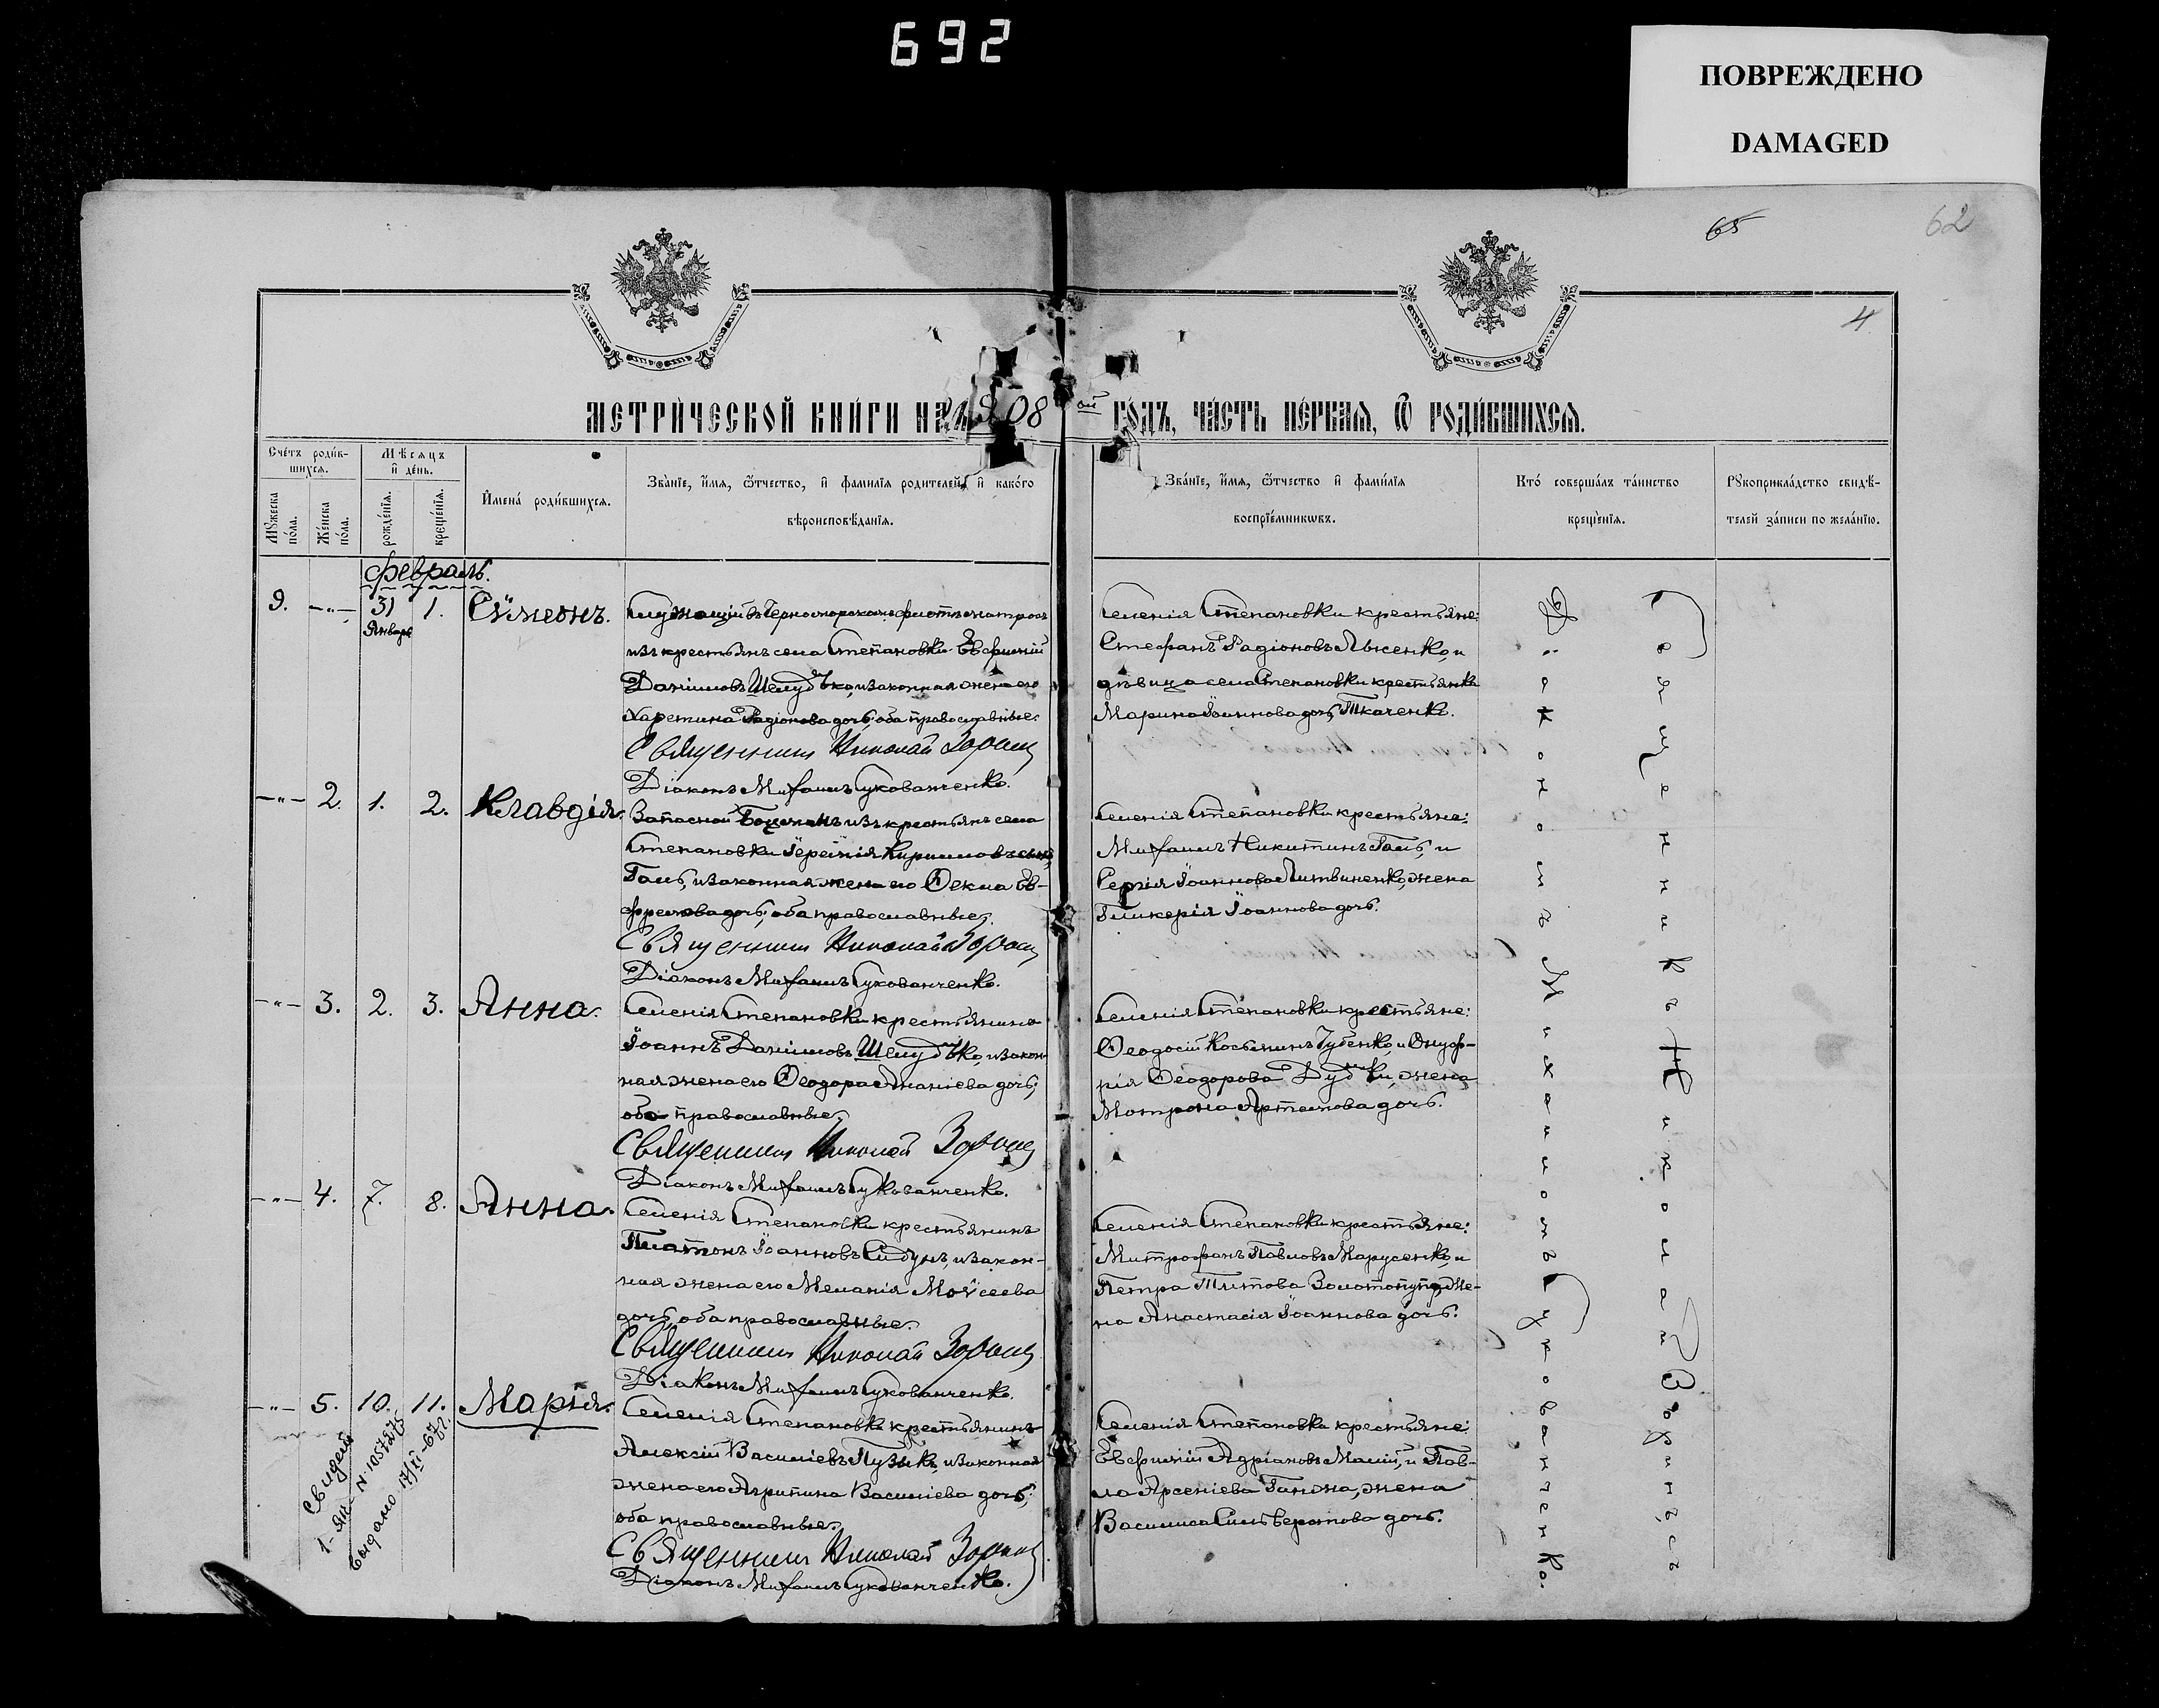 692
ПОВРЕЖДЕНО
DAMAGED
65
62
4
МЕТРИ́ЧЕСКОЙ КНИ́ГИ НА 1908 ой ГО́ДЪ, ЧА́СТЬ ПЕ́РВАЯ, Ѿ РОДИ́ВШИХСЯ.
Сче́тъ роди́в-
шихся.
Мѣсяцъ
и҆ де́нь.
Мꙋжеска
по́ла.
Же́нска
по́ла.
рожде́нїя.
креще́нїя.
И҆мена̀ роди́вшихся.
Зва́нїе, и҆́мя, ѻ҆́тчество, и҆ фами́лїя родителей, и҆ како́го
вѣроисповѣ́данїя.
Зва́нїе, и҆́мя, ѻ҆́тчество и҆ фами́лїя
воспрїе́мникѡвъ.
Кто̀ соверша́лъ та́инство
креще́нїя.
Рꙋкоприкла́дство свидѣ́-
телей за́писи по жела́нїю.
февраль.
9. —"— 31 Января 1. Сѵмеонъ.
Служащій въ Черноморскомъ флотѣ матросъ
изъ крестьянъ села Степановки Евфимій
Даниловъ Шелудько, и законная жена его
Харетина Радіонова дочь; оба православные.
Священникъ Николай
Діаконъ Михаилъ Сукованченко.
Селенія Степановки крестьяне:
Стефанъ Радіоновъ Лысенко, и
дѣвица села Степановки крестьянка
Марина Іоаннова дочь Ткаченко.
—"— 2. 1. 2. Клавдія.
Запасной Боцманъ изъ крестьянъ села
Степановки Кирилловъ
Галь, и законная жена его Ѳекла Ев-
фремова дочь; оба православные.
Священникъ Николай
Діаконъ Михаилъ Сукованченко.
Селенія Степановки крестьяне:
Михаилъ Никитинъ Галь, и
Сергія Іоаннова Литвиненко, жена
Гликерія Іоаннова дочь.
—"— 3. 2. 3. Анна.
Селенія Степановки крестьянинъ
Іоаннъ Даниловъ Шелудько, и закон-
ная жена его Ѳеодора Ананіева дочь;
оба православные.
Священникъ Николай
Діаконъ Михаилъ Сукованченко.
Селенія Степановки крестьяне:
Ѳеодосій Косьминъ Губенко, и Онуф-
рія Ѳеодорова Дудки, жена
Мотрона Артемова дочь.
—"— 4. 7. 8. Анна.
Селенія Степановки крестьянинъ
Платонъ Іоанновъ и закон-
ная жена его Меланія Моѵсеева
дочь, оба православные.
Священникъ Николай
Діаконъ Михаилъ Сукованченко.
Селенія Степановки крестьяне:
Митрофанъ Павловъ Марусенко, и
Петра Титова Золотопупа, же-
на Анастасія Іоаннова дочь.
—"— 5. 10. 11. Марія.
Селенія Степановки крестьянинъ
Алексій Василіевъ Пузикъ, и законная
жена его Агрипина Василіева дочь;
оба православные.
Священникъ Николай
Діаконъ Михаилъ Сукованченко.
Селенія Степановки крестьяне:
Евфимій Адріановъ Малій, и Пав-
ла Арсеніева жена
Василиса Сильвестрова дочь.
Діаконъ Михаилъ Сукованченко.
Священникъ Николай